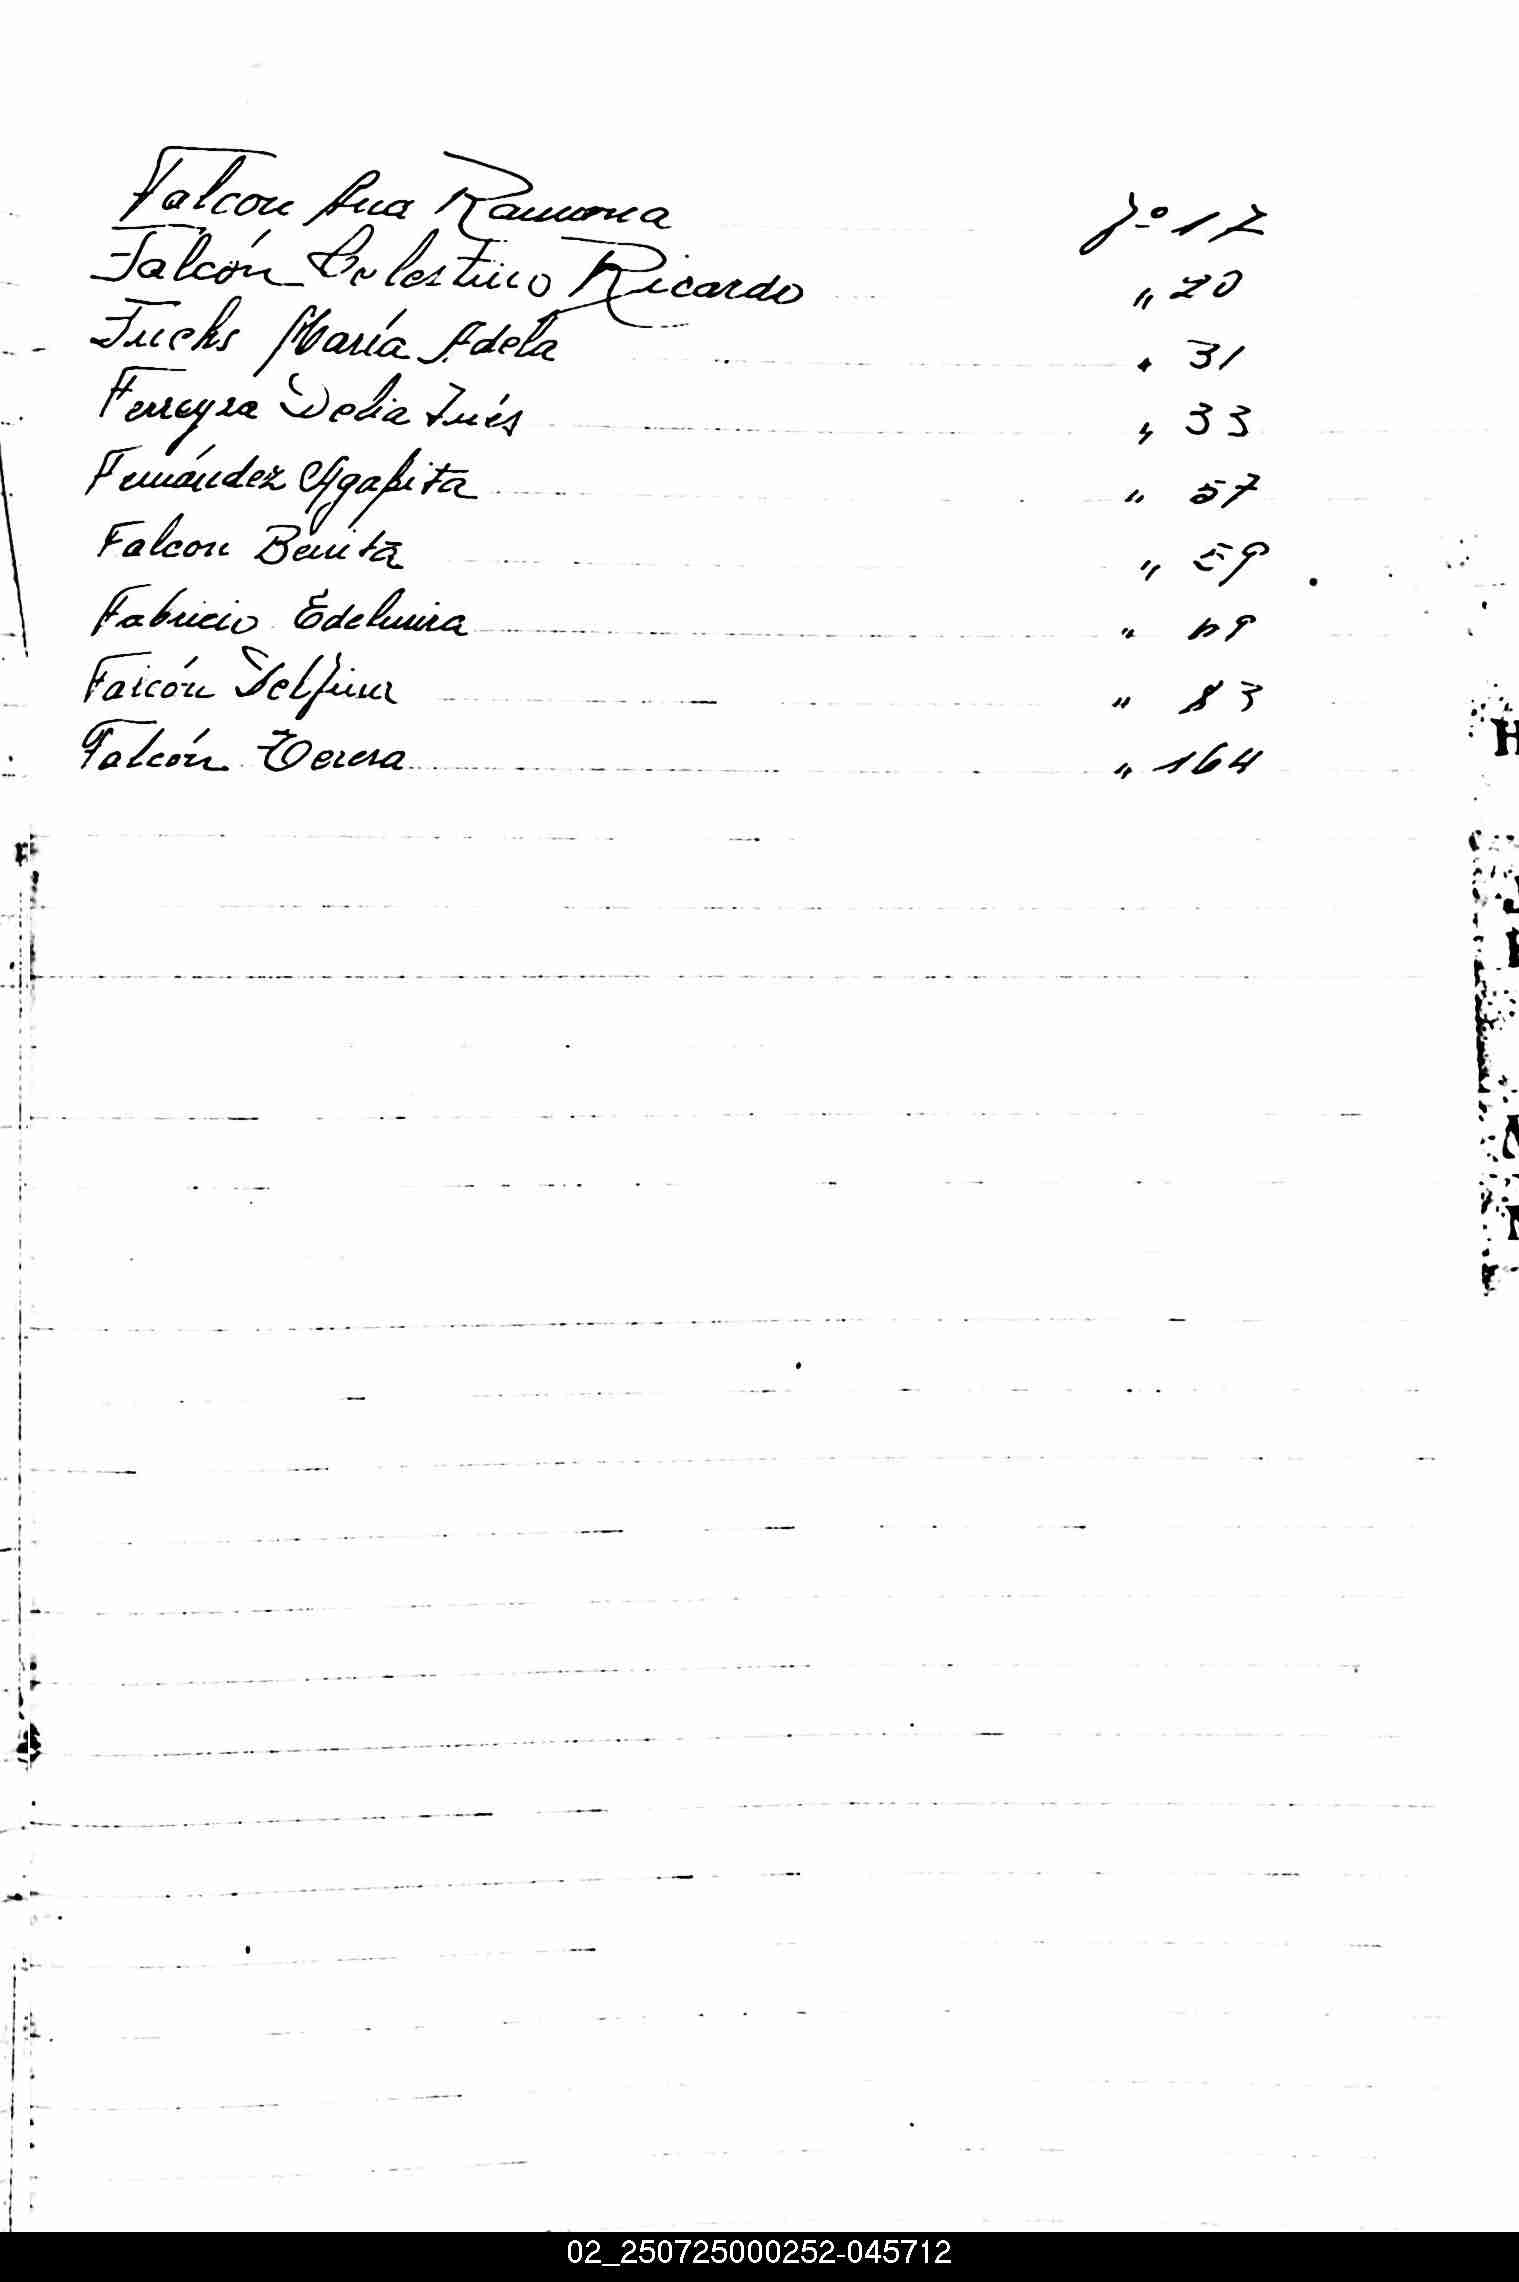 Falcon Ana Ramona fº 17
Falcón Celestino Ricardo " 20
Fuchs María Adela " 31
Ferreyra Delia Inés " 33
Fernández Agapita " 57
Falcon Benita " 59
Fabricio Edelmira " 69
Falcón Delfina " 83
Falcón Teresa " 164
02_250725000252-045712